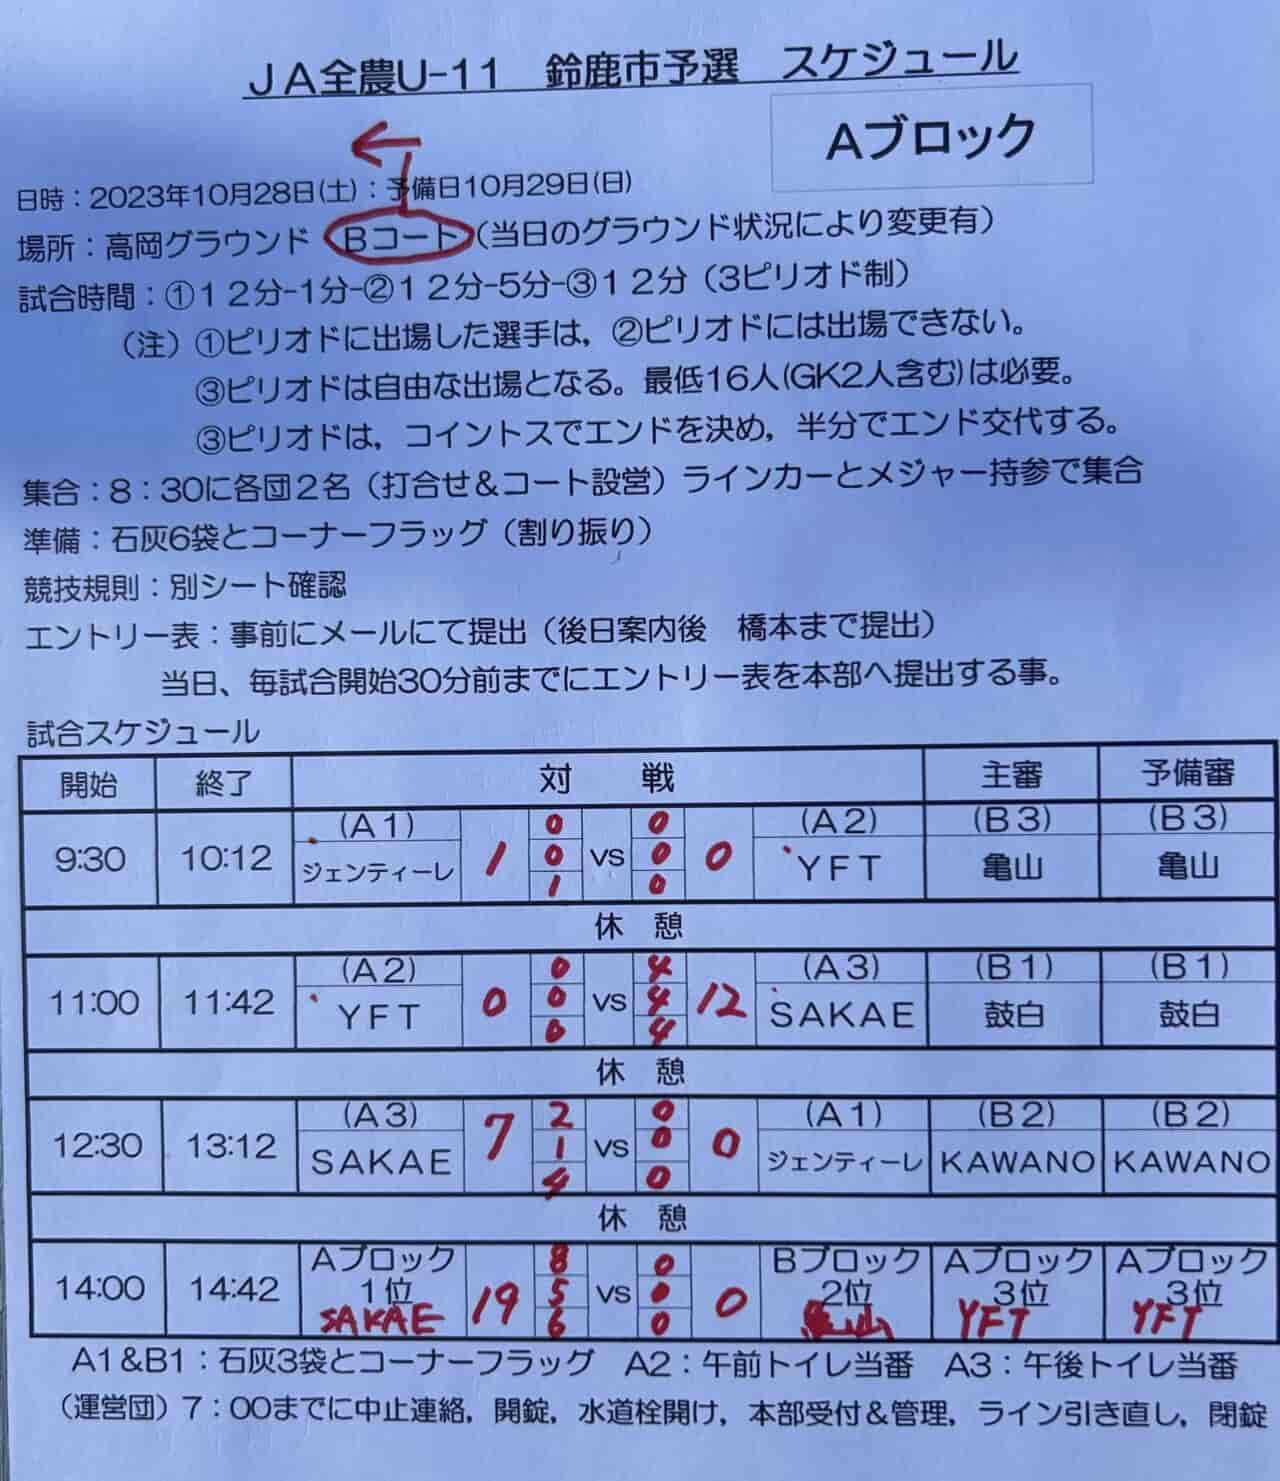 JA全農U-11　鈴鹿市予選　スケジュール
Aブロック
日時：2023年10月28日(土)：予備日10月29日(日)
場所：高岡グラウンド　Bコート（当日のグラウンド状況により変更有）
試合時間：①12分-1分-②12分-5分-③12分（3ピリオド制）
（注）①ピリオドに出場した選手は，②ピリオドには出場できない。
③ピリオドは自由な出場となる。最低16人(GK2人含む)は必要。
③ピリオドは，コイントスでエンドを決め，半分でエンド交代する。
集合：8：30に各団2名（打合せ＆コート設営）ラインカーとメジャー持参で集合
準備：石灰6袋とコーナーフラッグ（割り振り）
競技規則：別シート確認
エントリー表：事前にメールにて提出（後日案内後　橋本まで提出）
当日、毎試合開始30分前までにエントリー表を本部へ提出する事。
試合スケジュール
開始 終了 対　戦 主審 予備審
(A1) 0 0 (A2) (B3) (B3)
9:30 10:12 ジェンティーレ 1 0 vs 0 0 YFT 亀山 亀山
1 0
休　憩
(A2) 0 4 (A3) (B1) (B1)
11:00 11:42 YFT 0 0 vs 4 12 SAKAE 鼓白 鼓白
0 4
休　憩
(A3) 2 0 (A1) (B2) (B2)
12:30 13:12 SAKAE 7 1 vs 0 0 ジェンティーレ KAWANO KAWANO
4 0
休　憩
Aブロック 8 0 Bブロック Aブロック Aブロック
14:00 14:42 1位 19 5 vs 0 0 2位 3位 3位
SAKAE 6 0 亀山 YFT YFT
A1＆B1：石灰3袋とコーナーフラッグ　A2：午前トイレ当番　A3：午後トイレ当番
（運営団）7：00までに中止連絡，開錠，水道栓開け，本部受付＆管理，ライン引き直し，閉錠